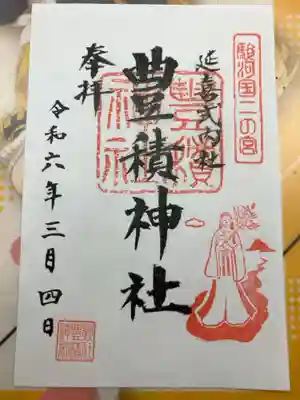 駿河国二の宮
延喜式内社
奉拝
豊積神社
令和六年三月四日